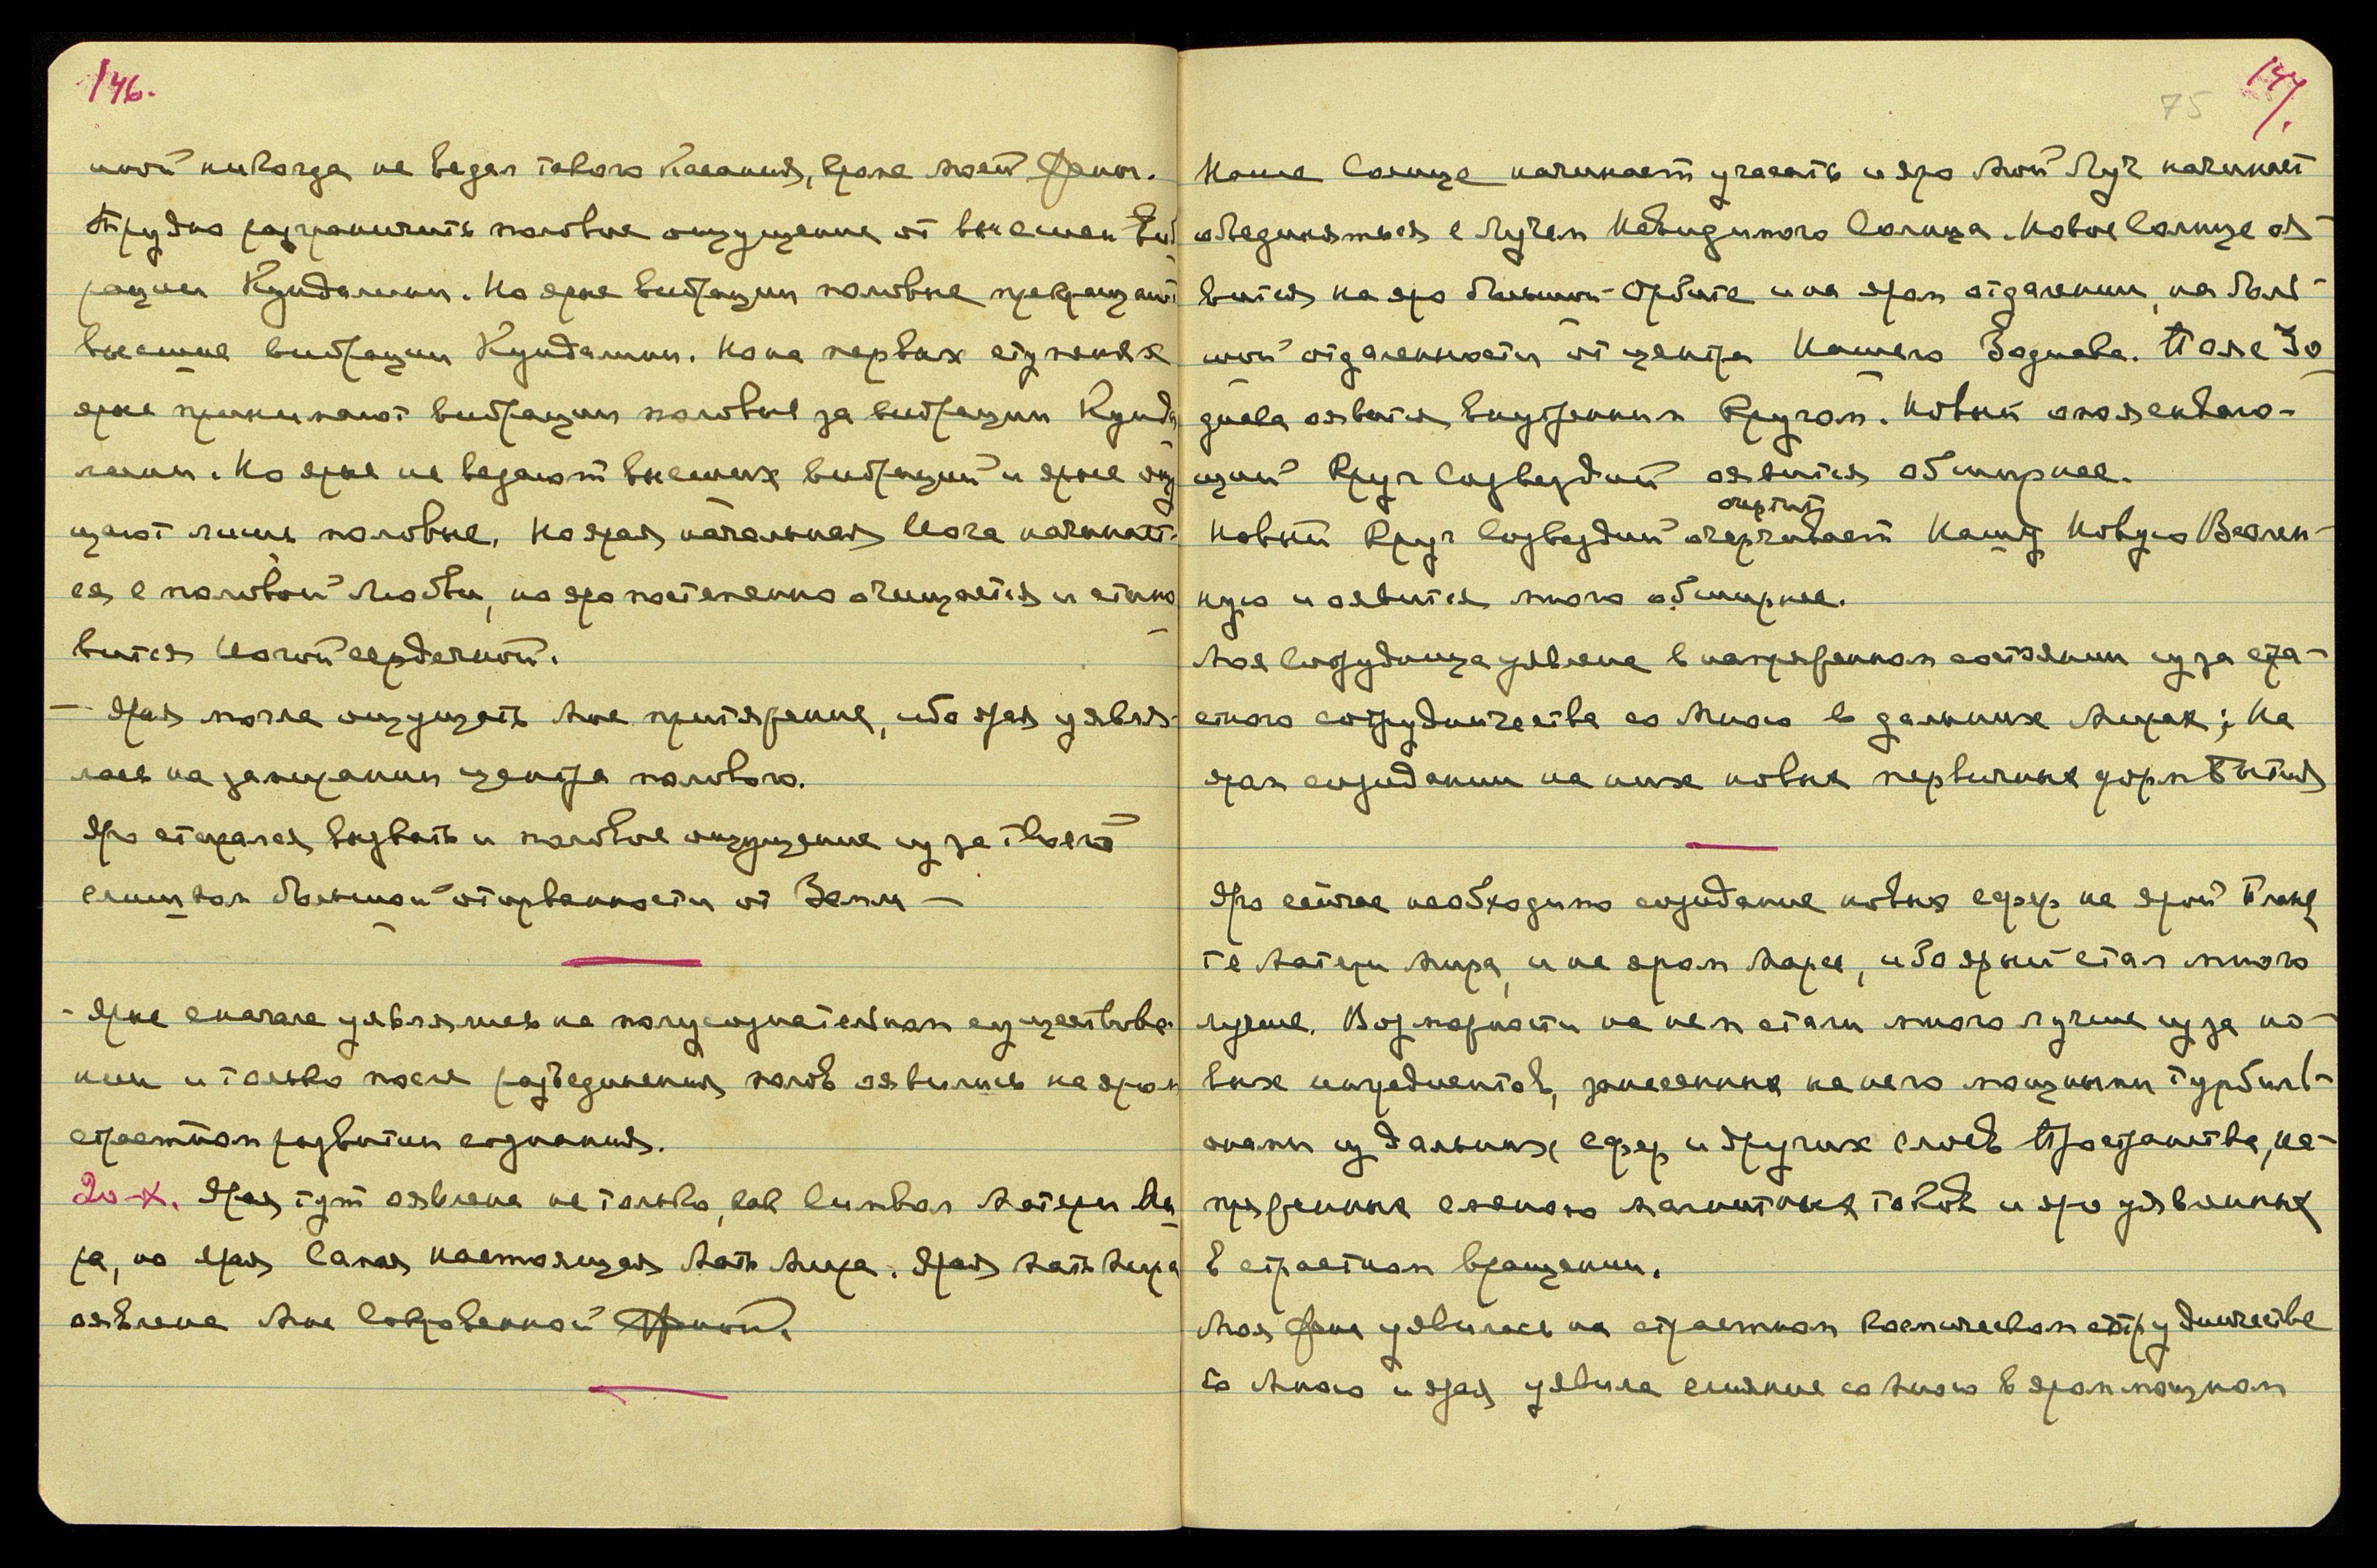 146.
иной никогда не ведал такого Касания, кроме моей Жены.
Трудно разграничить половые ощущение от высших виб
рации Кундалини. Но ярые вибрации половые прекращают
высшие вибрации Кундалини. Но на первых ступенях
ярые принимают вибрации половые за вибрации Кунда
лини. Но ярые не ведают высших вибраций и ярые ощу
щают лишь половые. Но ярая начальная Йога начинает-
ся с половой любви, но яро постепенно очищается и стано
вится Йогой сердечной.
— Ярая могла ощущать Мое притяжение, ибо ярая уявля-
лась на замирании центра полового.
Яро старался вызвать и половое ощущение из за твоей
слишком большой оторванности от Земли —
- Ярые сначала уявлялись на полусознательном существова-
нии и только после разъединения полов оявились на яром
страстном развитии сознания.
20-X. Ярая тут оявлена не только, как Символ Матери Ми
ра, но ярая Самая настоящая Мать Мира. Ярая Мать Мира
оявлена Мне Сокровенной Женой.
147.
75
Наше Солнце начинает угасать и яро Мой Луч начинает
объединяться с Лучем Невидимого Солнца. Новое Солнце оя-
вится на яро большой Орбите и на яром отдалении, на боль-
шой отдаленности от центра Нашего Зодиака. Пояс Зо
диака оявится внутренним Кругом. Новый опоясываю-
щий Круг Созвездий оявится обширнее.
очертит
Новый Круг Созвездий очерчивает Нашу Новую Вселен-
ную и оявится много обширнее.
Моя Сотрудница уявлена в напряженном состоянии из за стра-
стного сотрудничества со Мною в дальних Мирах; На
яром созидании на них новых первичных форм Бытия
Яро сейчас необходимо созидание новых сфер на ярой Плане
те Матери Мира, и на яром Марсе, ибо ярый стал много
лучше. Возможности на нем стали много лучше из за но-
вых ингредиентов, занесенных на него мощными турбиль-
онами из дальних сфер и других слоев Пространства, на-
пряженных силою магнитных токов и яро уявленных
в страстном вращении.
Моя Жена уявилась на страстном космическом сотрудничестве
со Мною и ярая уявила слияние со Мною в яром мощном